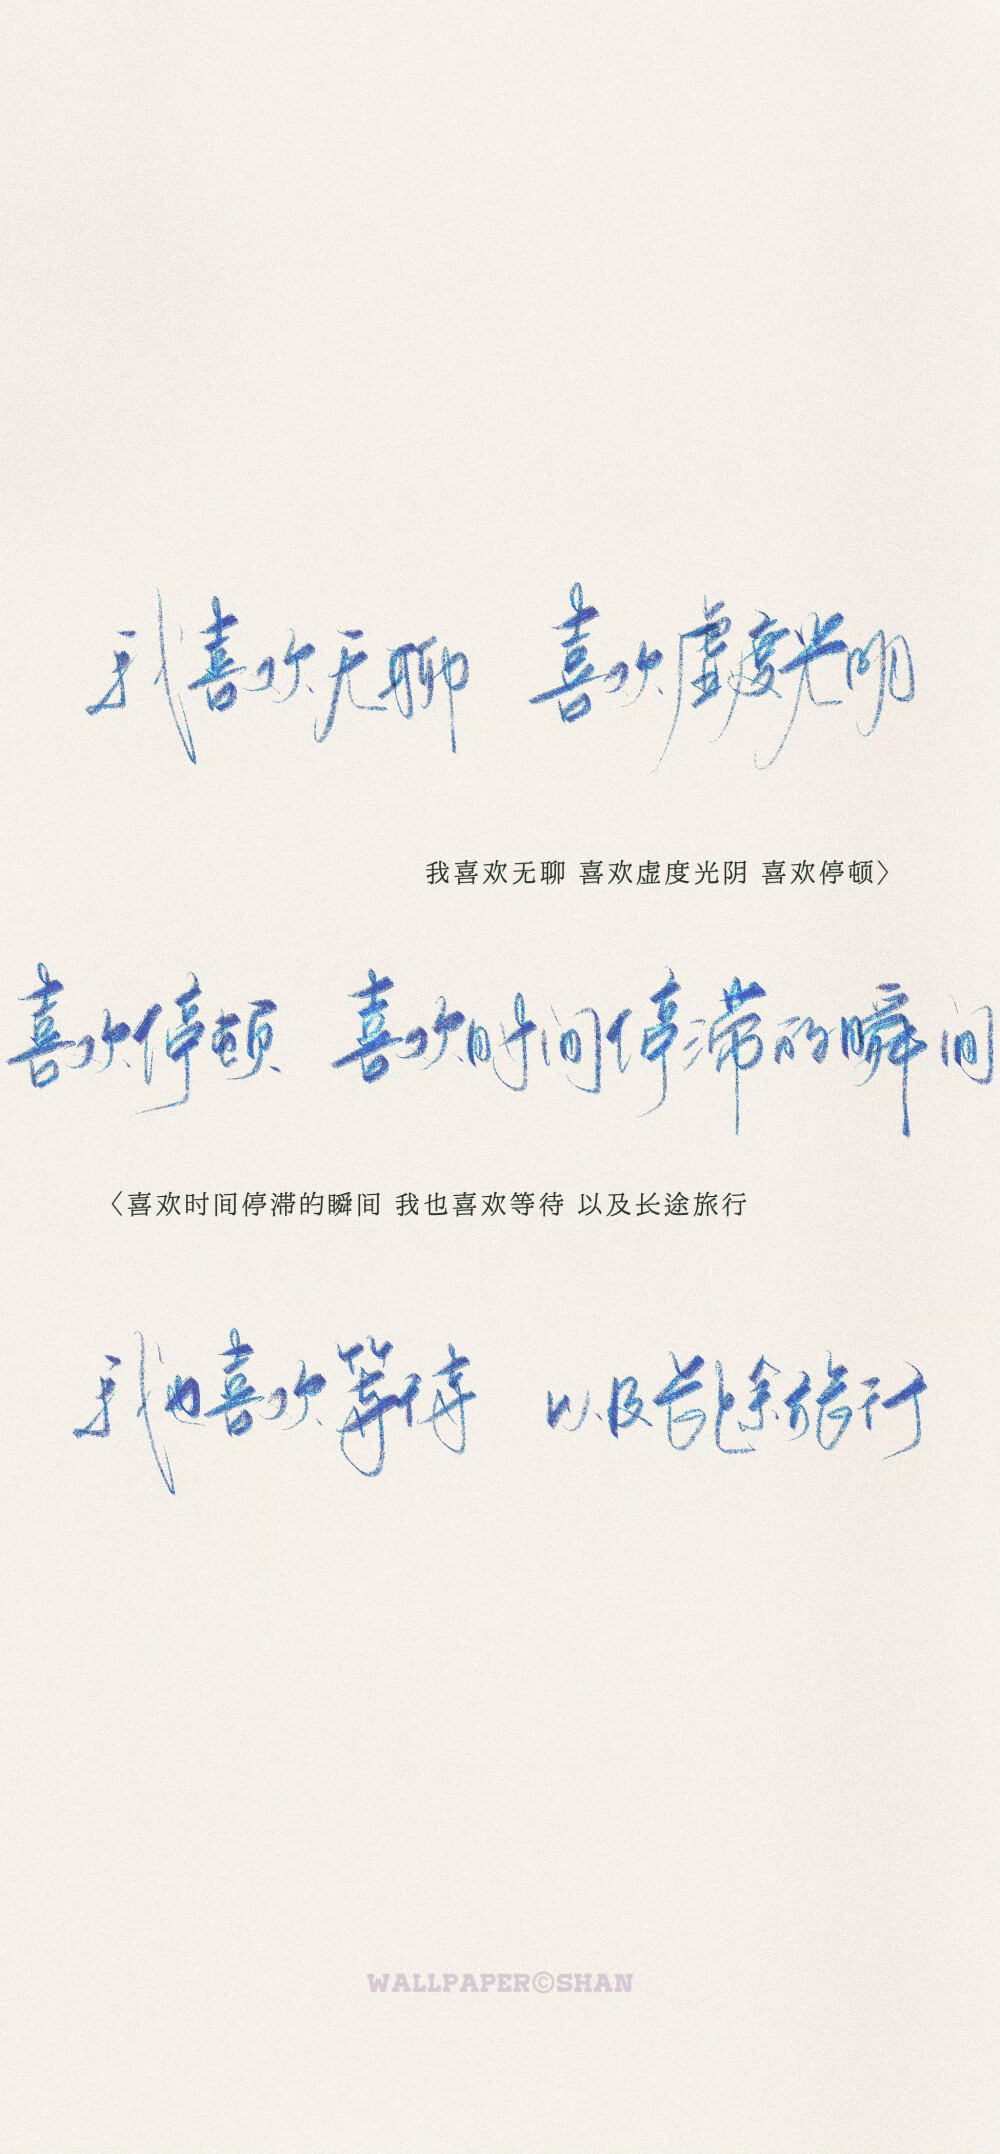 我喜欢无聊 喜欢虚度光阴
我喜欢无聊 喜欢虚度光阴 喜欢停顿〉
喜欢停顿 喜欢时间停滞的瞬间
〈喜欢时间停滞的瞬间 我也喜欢等待 以及长途旅行
我也喜欢等待 以及长途旅行
WALLPAPER©SHAN